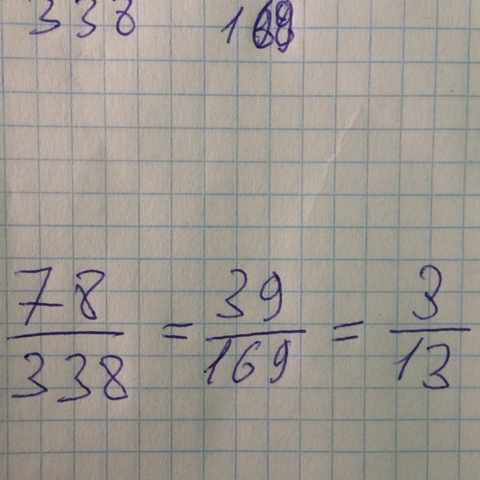 338
78/338 = 39/169 = 3/13